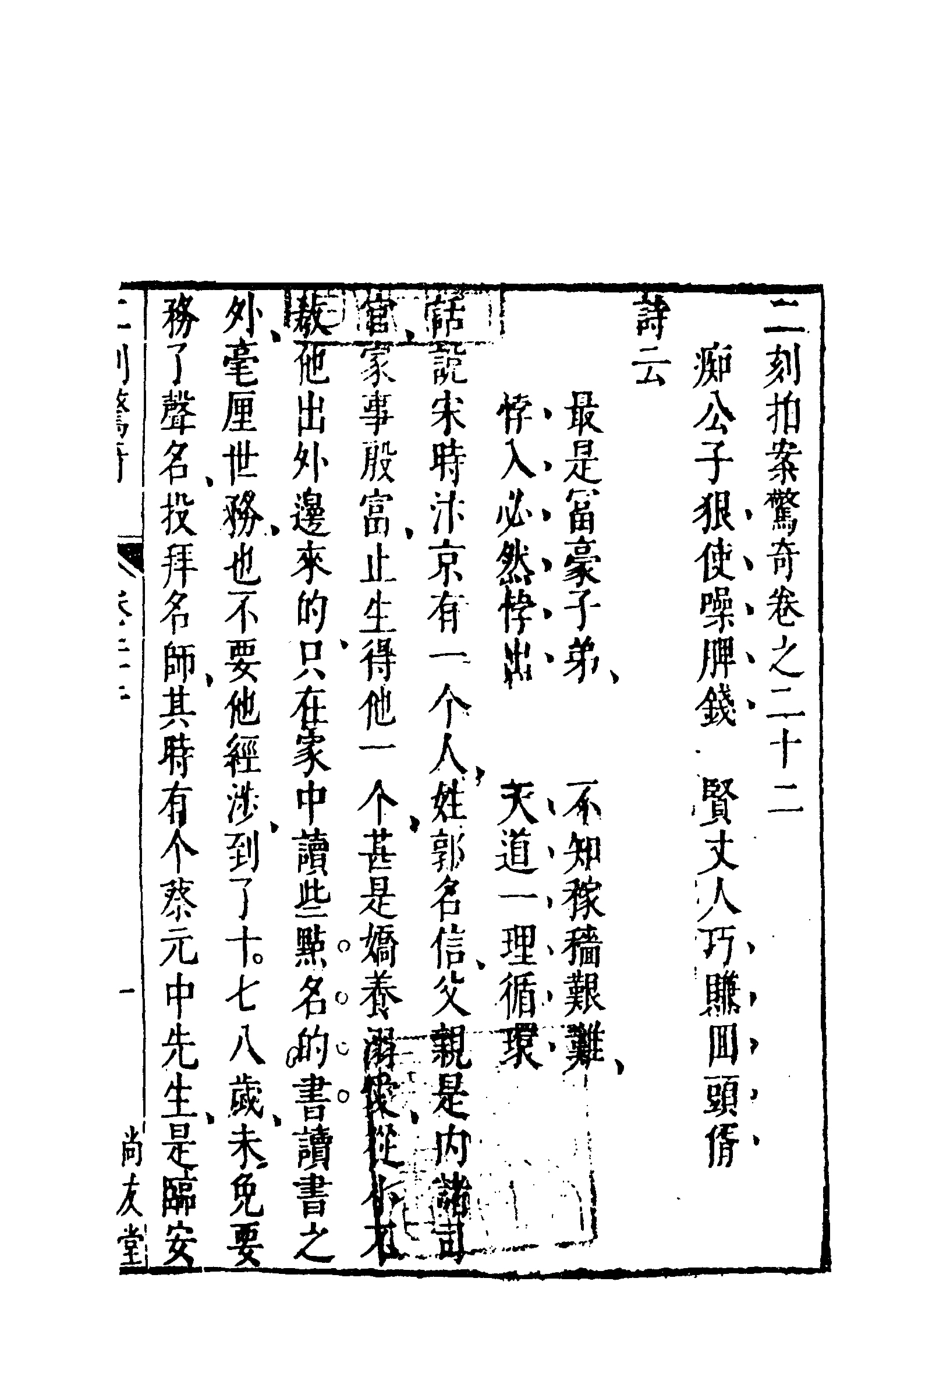 二刻拍案驚奇卷之二十二
痴公子狠使噪脾錢 賢丈人巧賺囬頭婿
詩云
最是富豪子弟、 不知稼穡艱難、
悖入必然悖出 天道一理循環
話說宋時汴京有一个人、姓郭名信、父親是内諸司
官、家事殷富、止生得他一个、甚是嬌養溺愛、從小不
教他出外邊來的、只在家中讀些點名的書讀書之
外、毫厘世務、也不要他經涉、到了十七八歲、未免要
務了聲名、投拜名師、其時有个蔡元中先生、是臨安
二刻驚奇 卷二十二 一 尚友堂